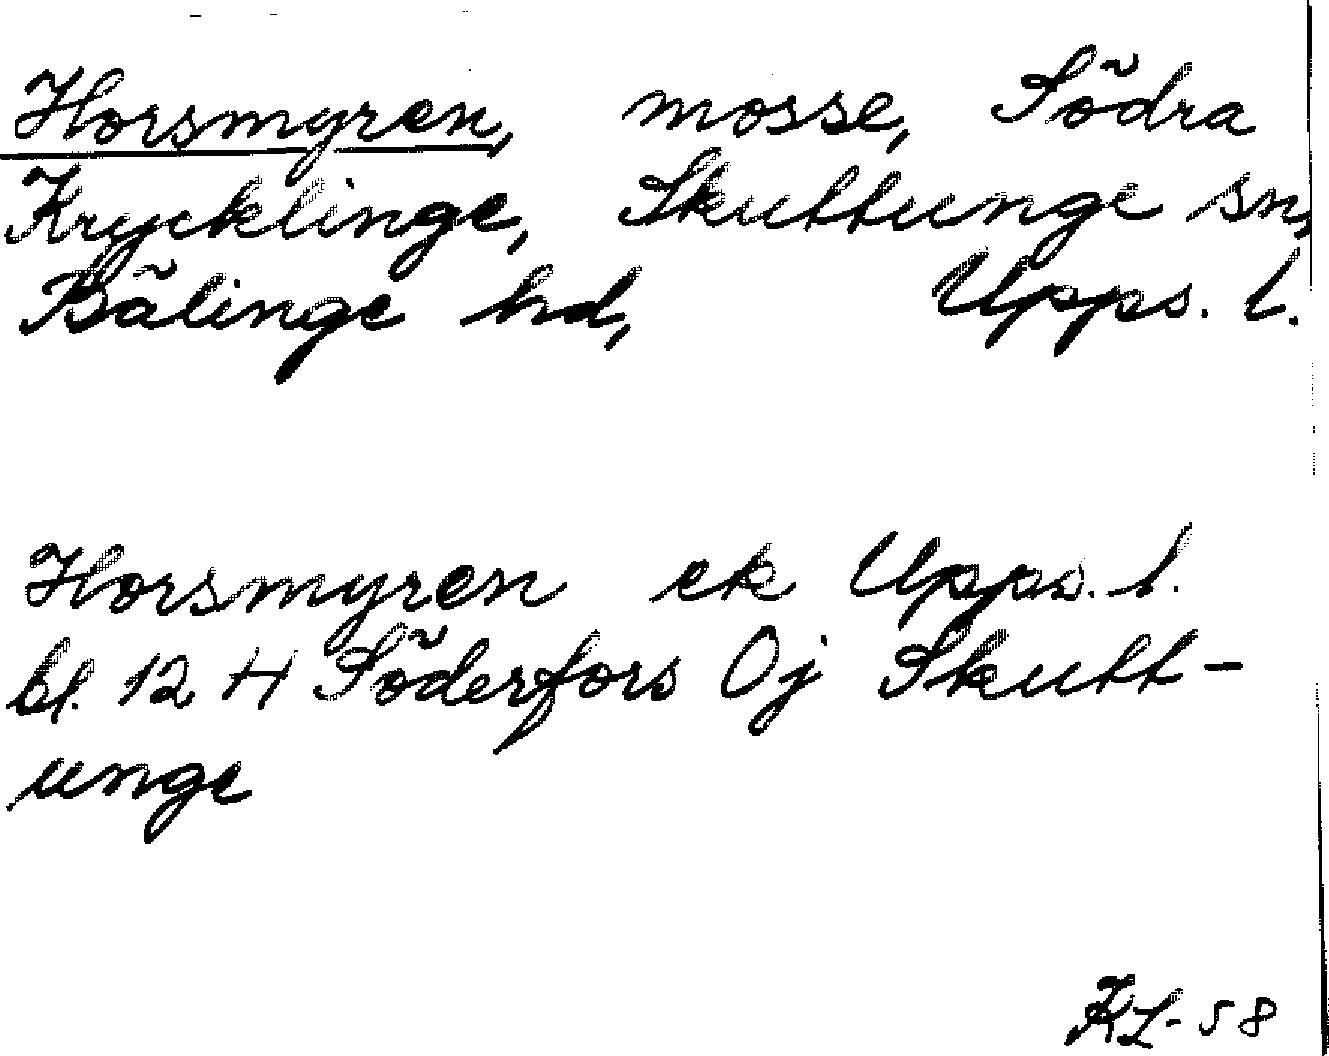 Horsmyren, mosse, Södra
Krycklinge, Skuttunge sn,
Bälinge hd, Upps. l.
Horsmyren ek Upps. l.
bl. 12 H Söderfors Oj Skutt-
unge
KL-58